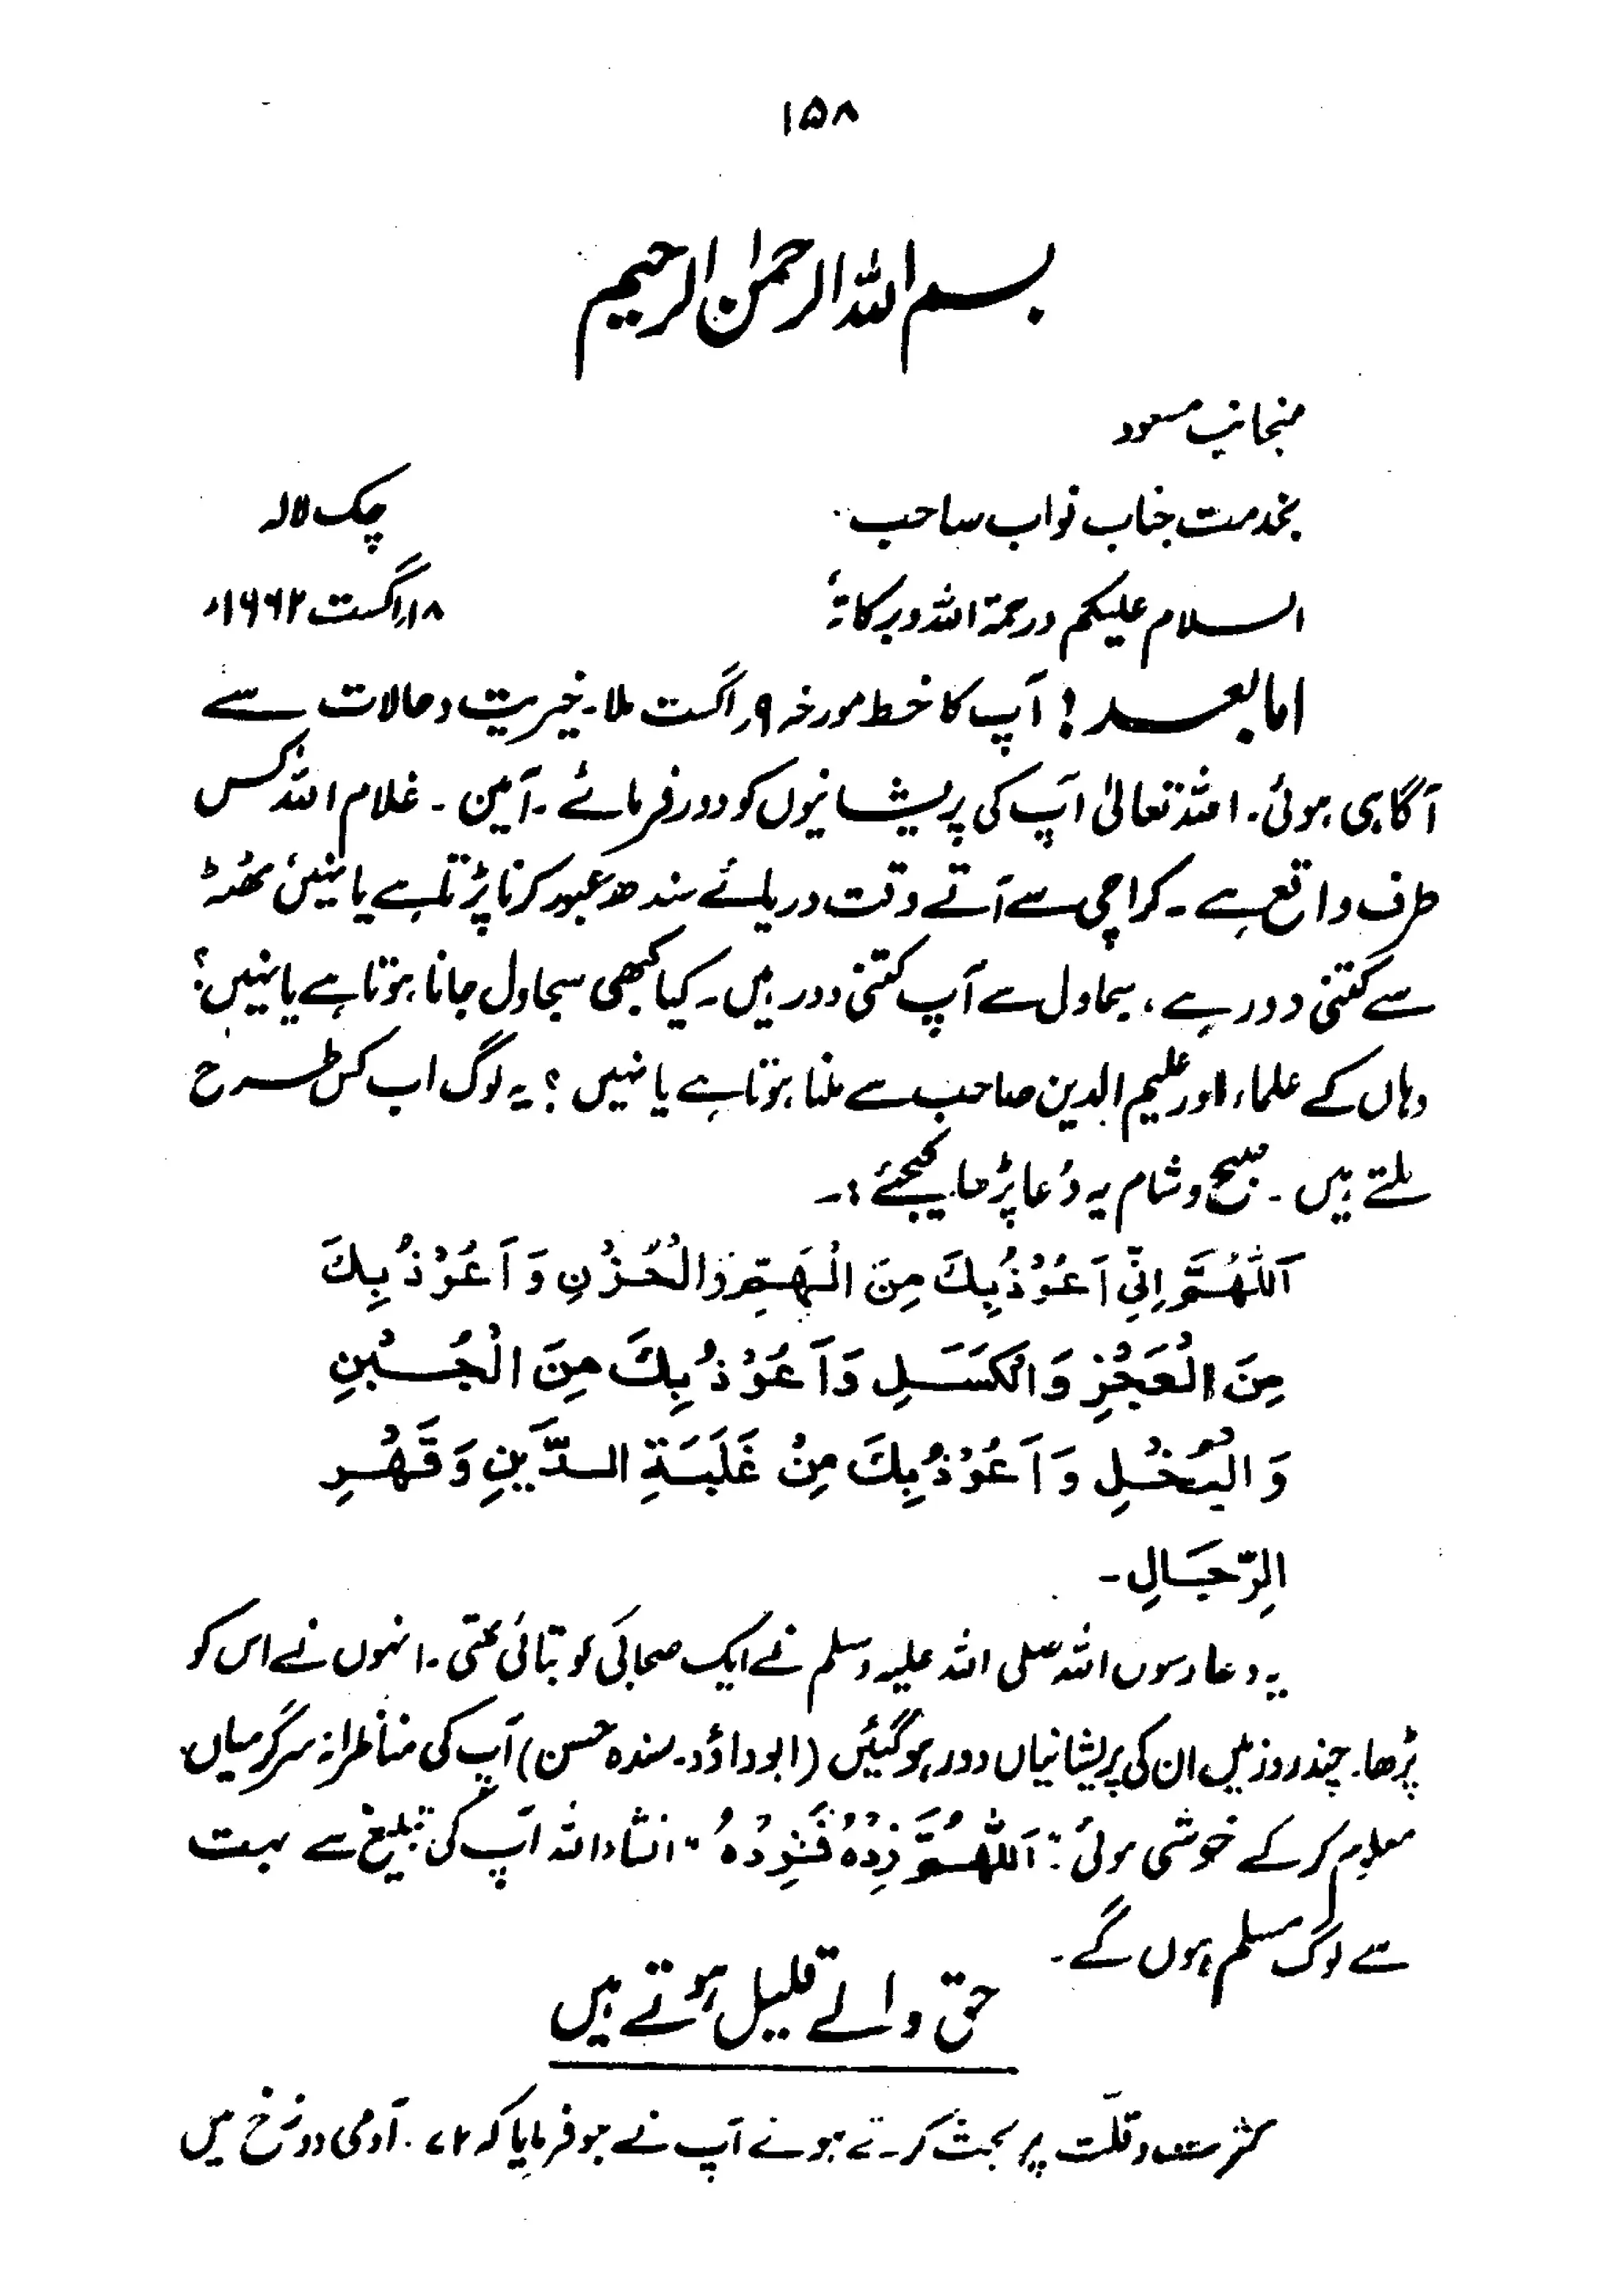 ۱۵۸
بسم اللہ الرحمٰن الرحیم
منجانب مسعود
بخدمت جناب نواب صاحب
چک لالہ
السلام علیکم ورحمۃ اللہ وبرکاتہٗ
۱۸ اگست ۱۹۶۲ء
امابعد! آپ کا خط مورخہ ۹ر اگست ملا۔ خیریت وحالات سے
آگاہی ہوئی۔ اللہ تعالیٰ آپ کی پریشانیوں کو دور فرمائے۔ آمین ۔ غلام اللہ کس
طرف واقع ہے ۔ کراچی سے آتے وقت دریائے سندھ عبور کرنا پڑتا ہے یا نہیں؟ ٹھٹہ
سے کتنی دور ہے ، سجاول سے آپ کتنی دور ہیں ۔ کیا کبھی سجاول جانا ہوتا ہے یا نہیں؟
وہاں کے علماء اور علیم الدین صاحب سے ملنا ہوتا ہے یا نہیں ؟ یہ لوگ اب کس طرح
ملتے ہیں ۔ صبح وشام یہ دُعا پڑھا کیجئے :۔
اَللّٰھُمَّ اِنِّیْ اَعُوْذُ بِکَ مِنَ الْھَمِّ وَالْحُزْنِ وَ اَعُوْذُ بِکَ
مِنَ الْعَجْزِ وَالْکَسَلِ وَاَعُوْذُ بِکَ مِنَ الْجُبْنِ
وَ الْبُخْلِ وَ اَعُوْذُ بِکَ مِنْ غَلَبَۃِ الدَّیْنِ وَ قَھْرِ
الرِّجَالِ ۔
یہ دعا رسول اللہ صلی اللہ علیہ وسلم نے ایک صحابی کو بتائی تھی ۔ انہوں نے اس کو
پڑھا۔ چند روز میں ان کی پریشانیاں دور ہوگئیں (ابوداؤد۔ سندہ حسن) آپ کی مناظرانہ سرگرمیاں
معلوم کر کے خوشی ہوئی : اَللّٰھُمَّ زِدْہُ فَزِدْہُ " انشاء اللہ آپ کی تبلیغ سے بہت
سے لوگ مسلم ہوں گے ۔
حق والے قلیل ہوتے ہیں
کثرت وقلّت پر بحث کرتے ہوئے آپ نے جو فرمایا کہ ۷۲ . آدمی دوزخ میں